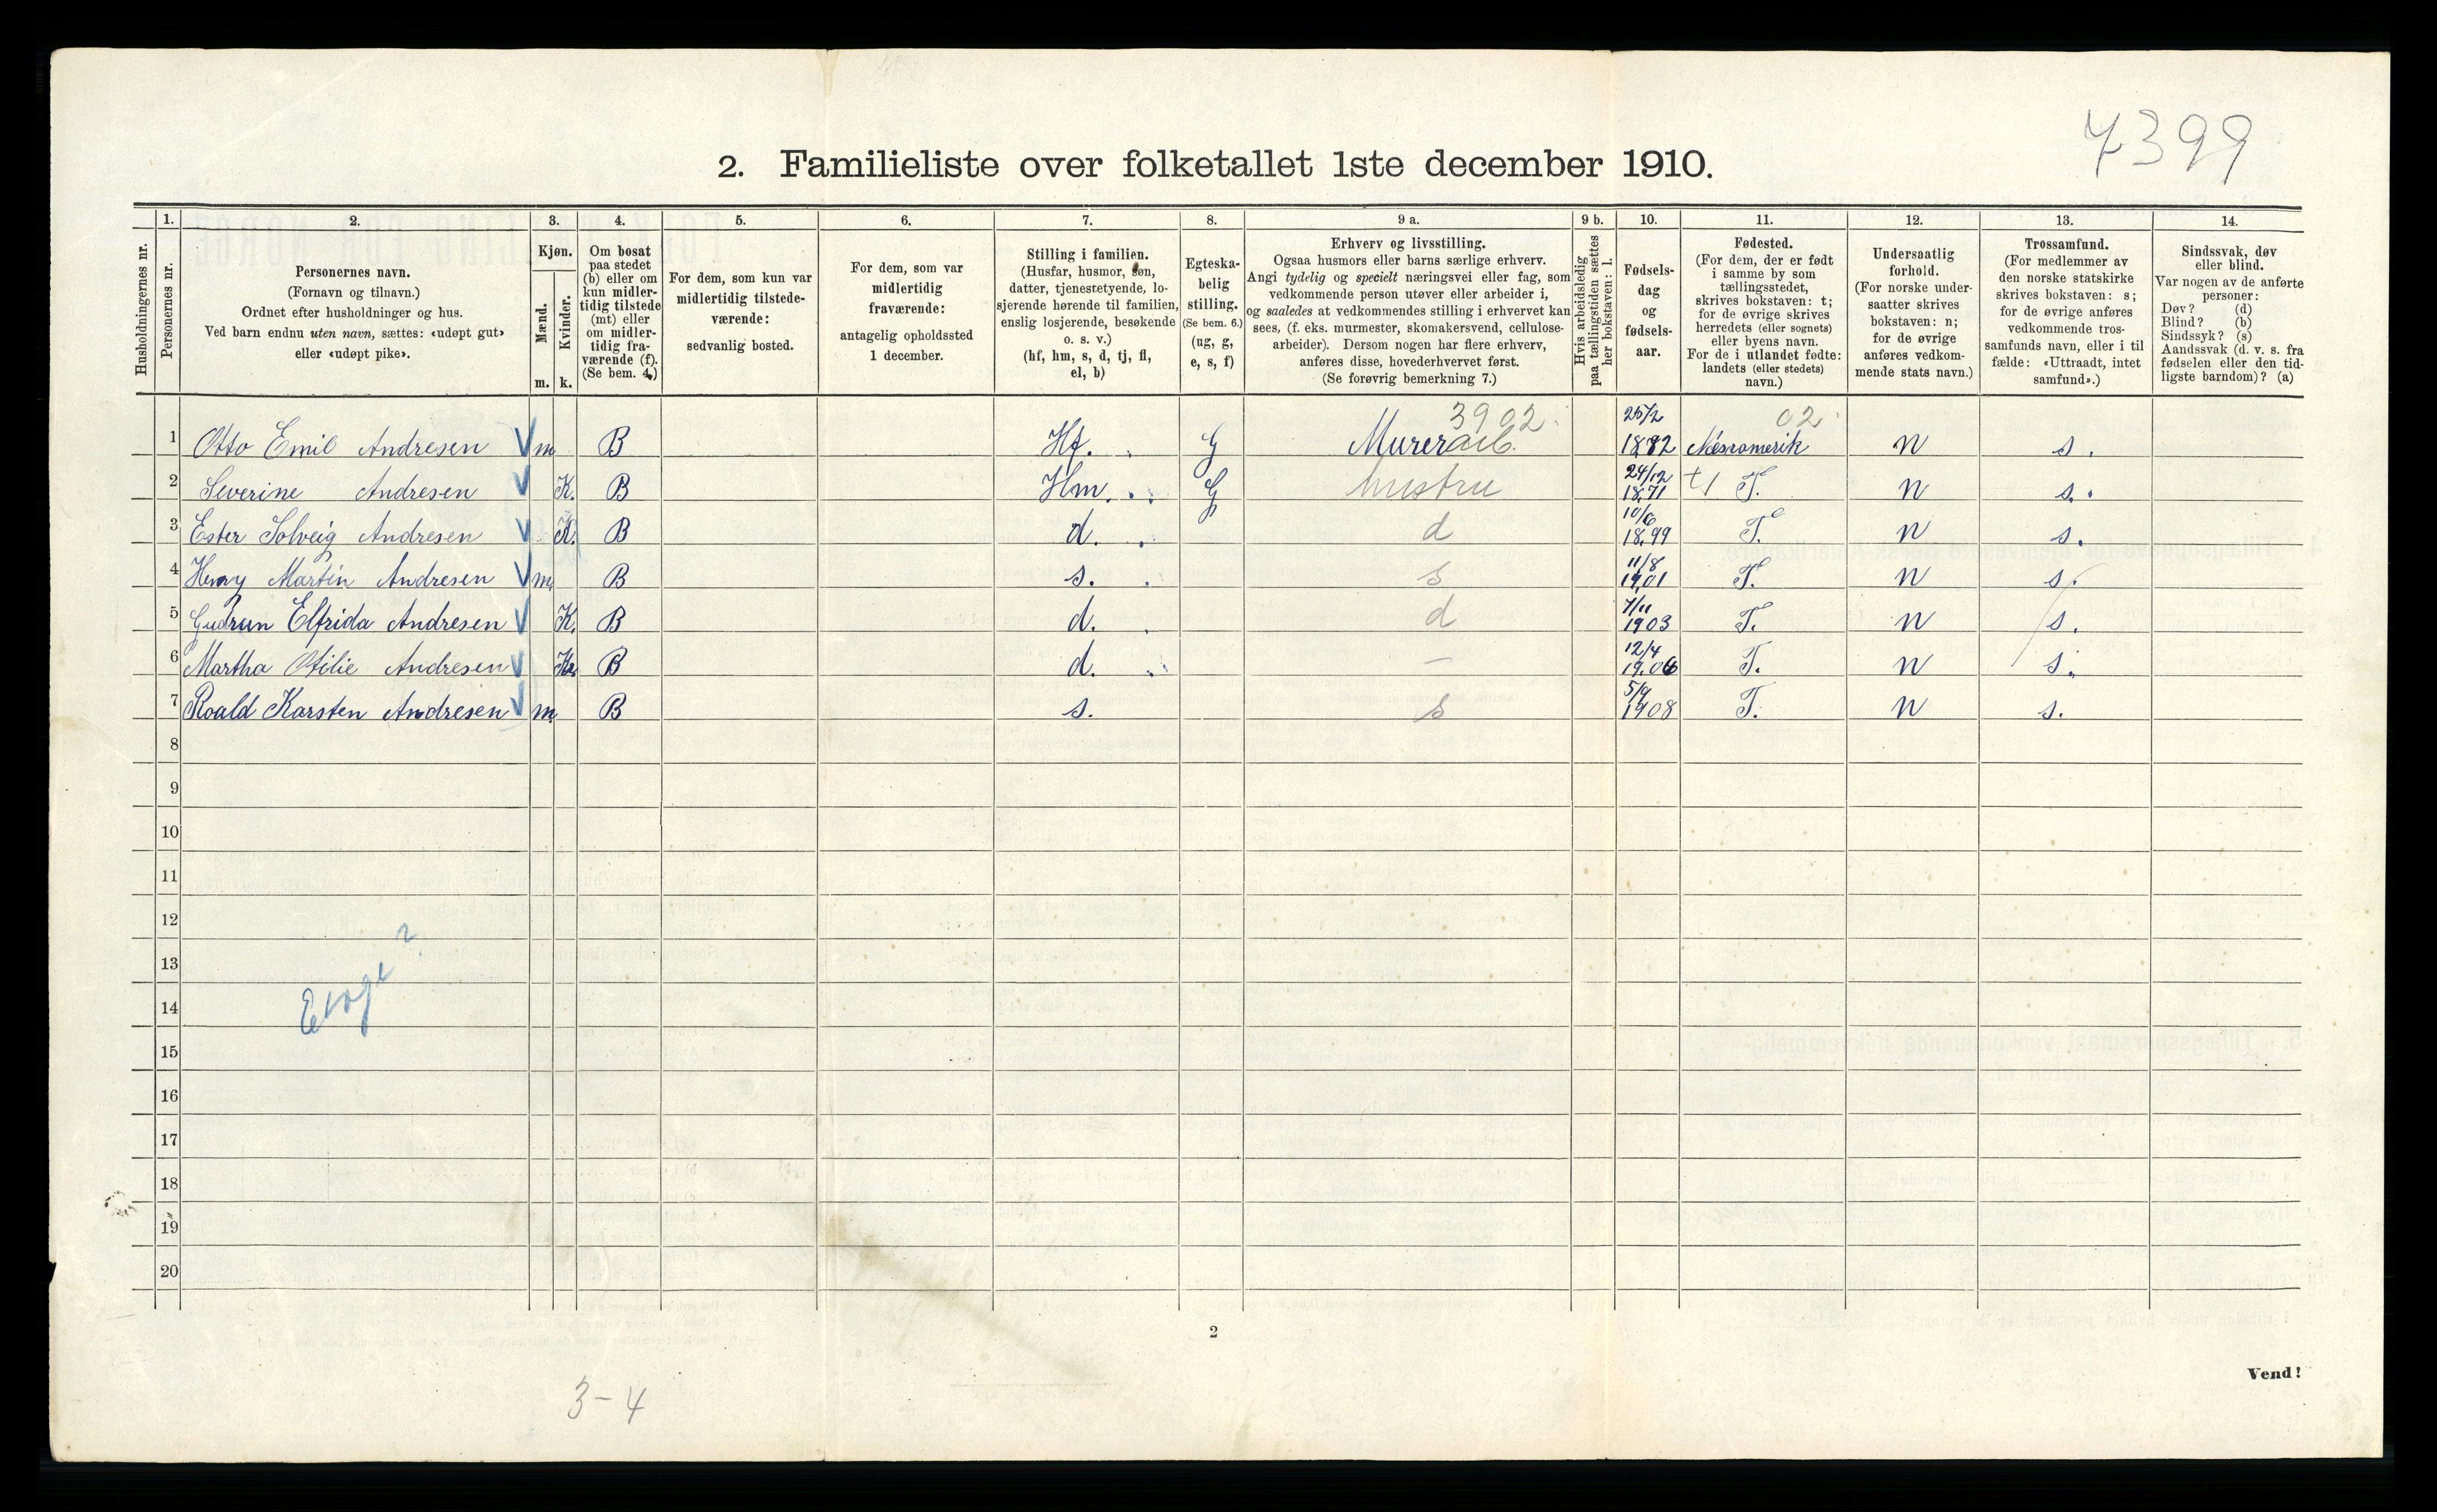 7399
2. Familieliste over folketallet 1ste december 1910.
Husholdningernes nr.
1.
Personernes nr.
2.
Personernes navn.
(Fornavn og tilnavn.)
Ordnet efter husholdninger og hus.
Ved barn endnu uten navn, sættes: «udøpt gut»
eller «udøpt pike».
3.
Kjøn.
Mænd.
Kvinder.
m. k.
4.
Om bosat
paa stedet
(b) eller om
kun midler-
tidig tilstede
(mt) eller
om midler-
tidig fra-
værende (f).
(Se bem. 4.)
5.
For dem, som kun var
midlertidig tilstede-
værende:
sedvanlig bosted.
6.
For dem, som var
midlertidig
fraværende:
antagelig opholdssted
1 december.
7.
Stilling i familien.
(Husfar, husmor, søn,
datter, tjenestetyende, lo-
sjerende hørende til familien,
enslig losjerende, besøkende
o. s. v.)
(hf, hm, s, d, tj, fl,
el, b)
8.
Egteska-
belig
stilling.
(Se bem. 6.)
(ug, g,
e, s, f)
9 a.
Erhverv og livsstilling.
Ogsaa husmors eller barns særlige erhverv.
Angi tydelig og specielt næringsvei eller fag, som
vedkommende person utøver eller arbeider i,
og saaledes at vedkommendes stilling i erhvervet kan
sees, (f. eks. murmester, skomakersvend, cellulose-
arbeider). Dersom nogen har flere erhverv,
anføres disse, hovederhvervet først.
(Se forøvrig bemerkning 7.)
9 b.
Hvis arbeidsledig
paa tællingstiden sættes
her bokstaven: l.
10.
Fødsels-
dag
og
fødsels-
aar.
11.
Fødested.
(For dem, der er født
i samme by som
tællingsstedet,
skrives bokstaven: t;
for de øvrige skrives
herredets (eller sognets)
eller byens navn.
For de i utlandet fødte:
landets (eller stedets)
navn.)
12.
Undersaatlig
forhold.
(For norske under-
saatter skrives
bokstaven: n;
for de øvrige
anføres vedkom-
mende stats navn.)
13.
Trossamfund.
(For medlemmer av
den norske statskirke
skrives bokstaven: s;
for de øvrige anføres
vedkommende tros-
samfunds navn, eller i til
fælde: «Uttraadt, intet
samfund».)
14.
Sindssvak, døv
eller blind.
Var nogen av de anførte
personer:
Døv? (d)
Blind? (b)
Sindssyk? (s)
Aandssvak (d. v. s. fra
fødselen eller den tid-
ligste barndom)? (a)
3902 25/2 02
1 Otto Emil Andresen m B Hf. G Murerarb. n s.
2 Severine Andresen K. B Hm. G hustru 24/12 1871 T. n s.
3 Ester Solveig Andresen K. B d. d 10/6 1899 T. n s.
4 Henry Martin Andresen m. B s. s 11/8 1901 T. n s.
5 Gudrun Elfrida Andresen K. B d. d 7/11 1903 T. n s.
6 Martha Otilie Andresen K. B d. — 12/4 1906 T. n s.
7 Roald Karsten Andresen m. B s. s 5/9 1908 T. n s.
8
9
10
11
12
13
14
15
16
17
18
19
20
2
Vend!
3-4